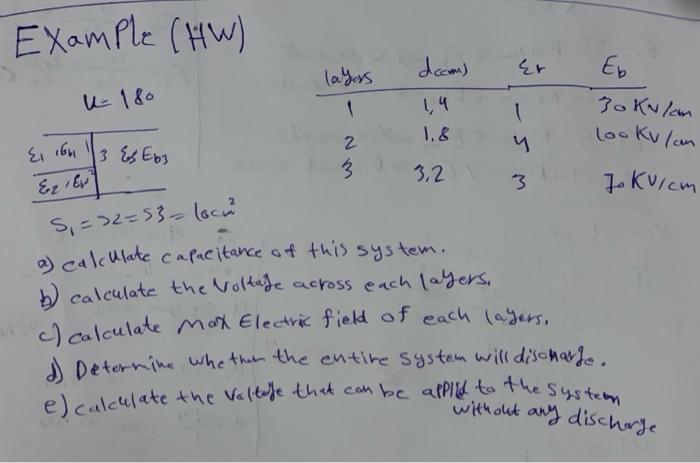 Example (HW)
layers d(cm) εr Eb
1 1,4 1 30 KV/cm
2 1.8 4 100 KV/cm
3 3,2 3 70 KV/cm
U= 180
ε1, 1 3 ε3 Eb3
ε2, 2
S1 = S2 = S3 = 10cm²
a) calculate capacitance of this system.
b) calculate the Voltage across each layers.
c) calculate Max Electric field of each layers.
d) Determine whether the entire system will discharge.
e) calculate the voltage that can be applid to the system
without any discharge